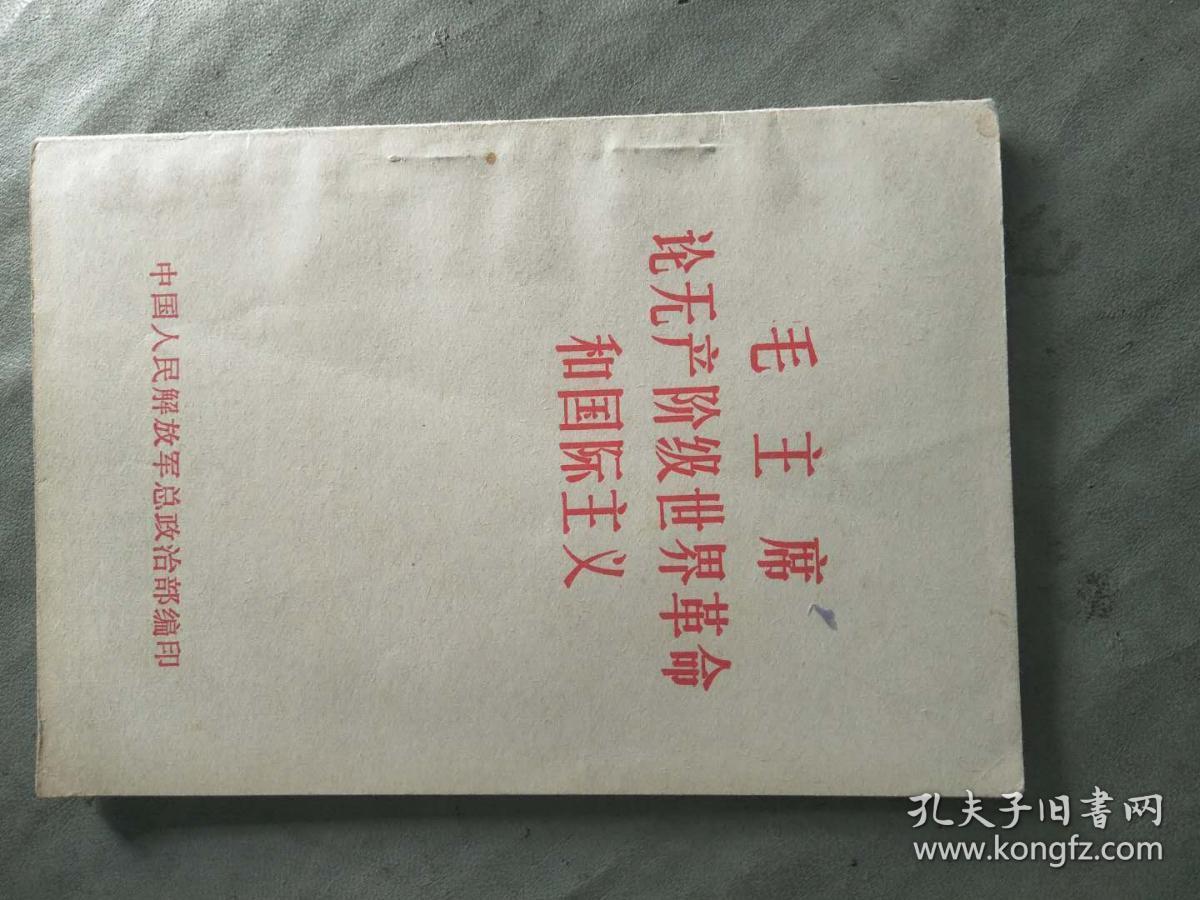 毛主席
论无产阶级世界革命
和国际主义
中国人民解放军总政治部编印
孔夫子旧書网
www.kongfz.com